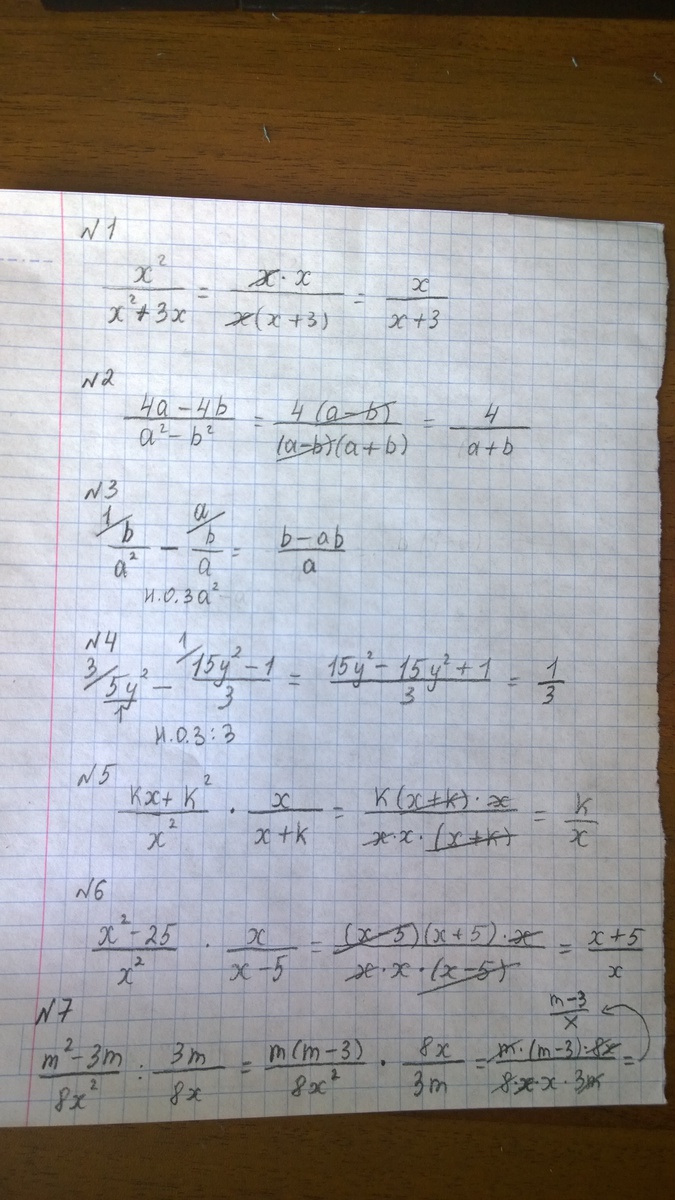 №1
x²/(x²+3x) = (x·x)/(x(x+3)) = x/(x+3)
№2
(4a−4b)/(a²−b²) = (4(a−b))/((a−b)(a+b)) = 4/(a+b)
№3
1/ b/a² − a/ b/a = (b−ab)/a
Н.О.З a²
№4
3/ 5y²/1 − 1/ (15y²−1)/3 = (15y²−15y²+1)/3 = 1/3
Н.О.З : 3
№5
(kx+k²)/x² · x/(x+k) = (k(x+k)·x)/(x·x·(x+k)) = k/x
№6
(x²−25)/x² · x/(x−5) = ((x−5)(x+5)·x)/(x·x·(x−5)) = (x+5)/x
№7
(m²−3m)/8x² : 3m/8x = (m(m−3))/8x² · 8x/3m = (m·(m−3)·8x)/(8·x·x·3m) =
(m−3)/x